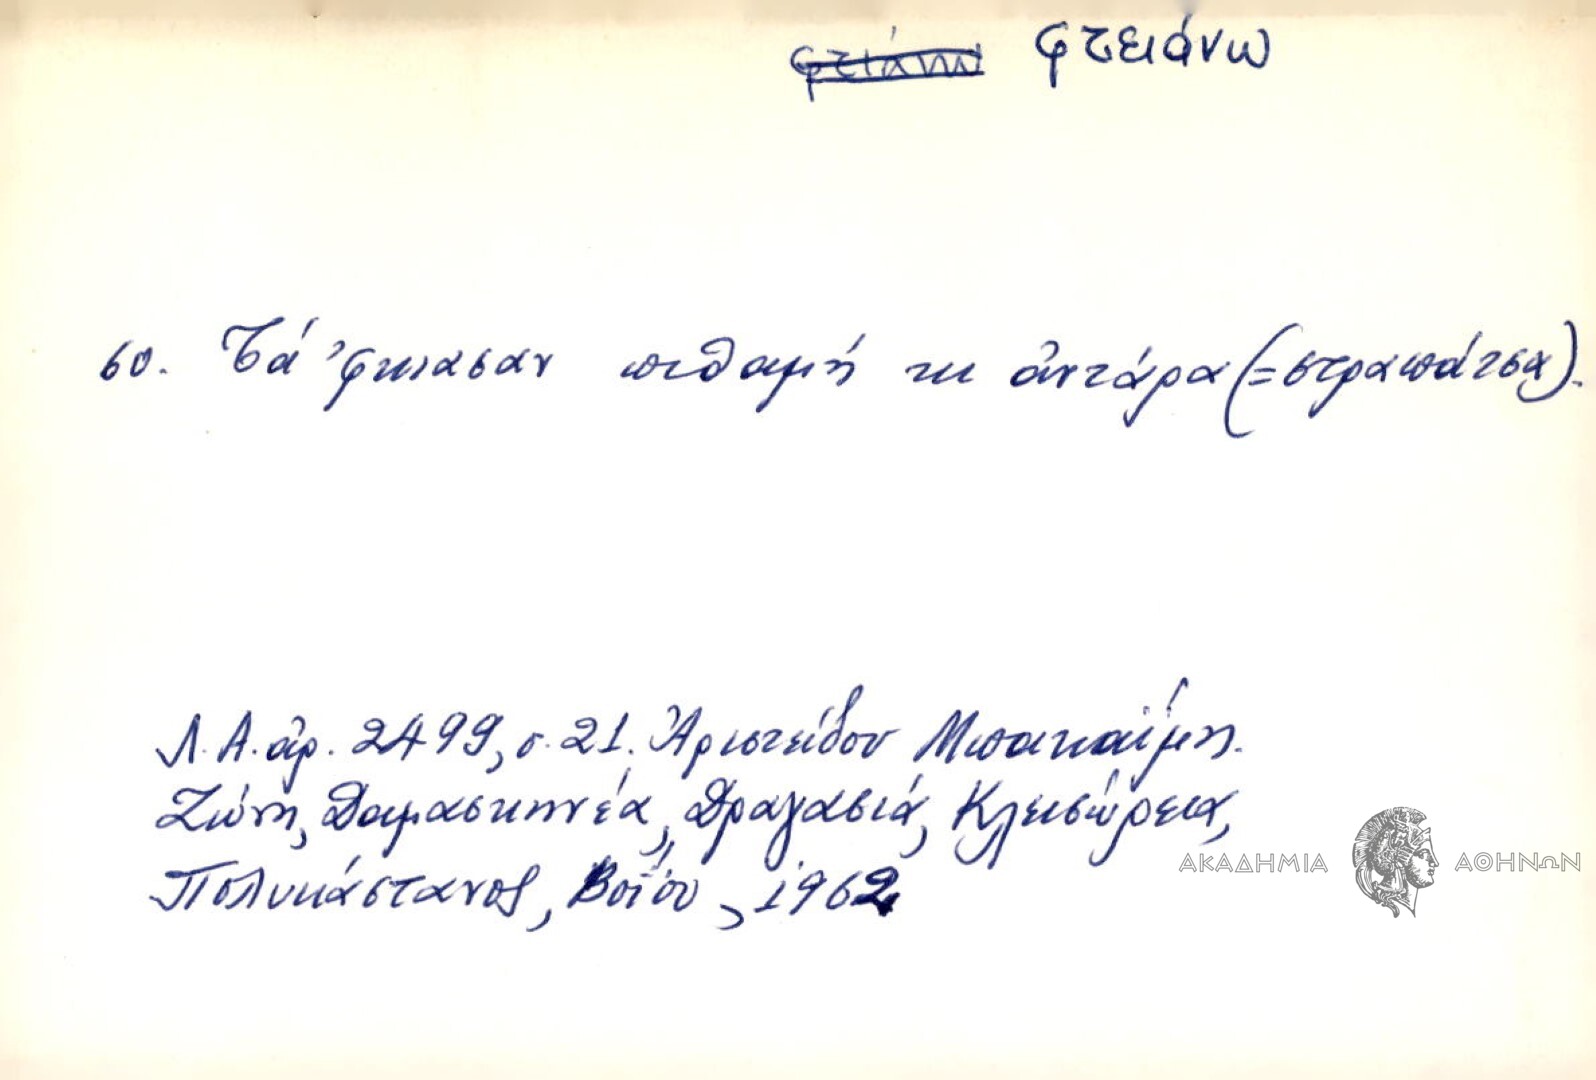 φτιάνω φτειάνω
60. Τά ᾿φκιασαν πιθαμή κι ἀντάρα (=στραπάτσα).
Λ.Α. ἀρ. 2499, σ. 21. Ἀριστείδου Μπακαΐμη.
Ζώνη, Δαμασκηνέα, Δραγασιά, Κλεισώρεια,
Πολυκάστανος, Βοΐου, 1962
ΑΚΑΔΗΜΙΑ ΑΘΗΝΩΝ